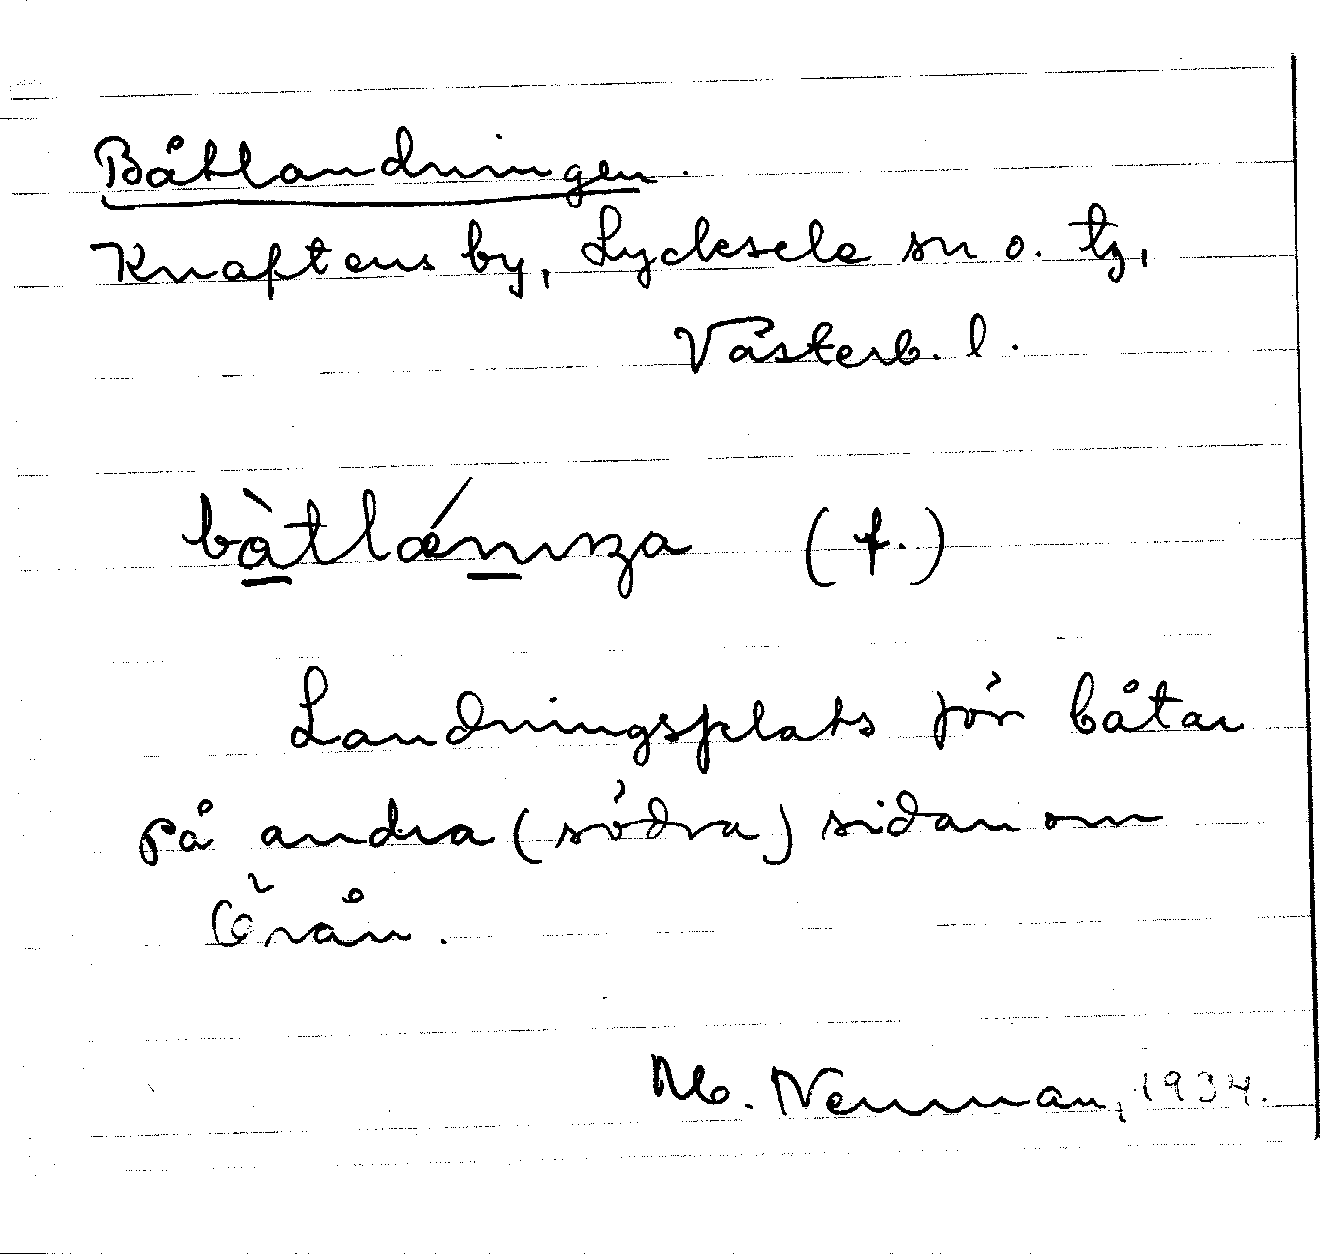 Båtlandningen.
Knaftens by, Lycksele sn o. tg,
Västerb. l.
(f.)
Landningsplats för båtar
på andra (södra) sidan om
Örån.
M. Neuman, 1934.